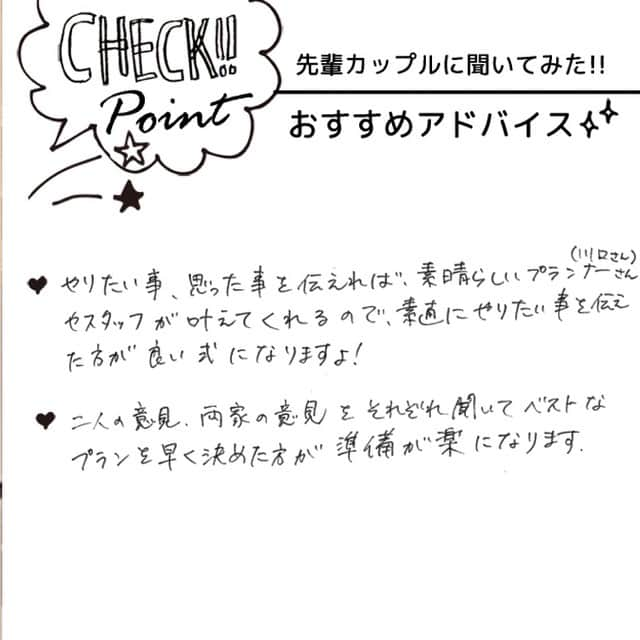 CHECK!!
Point
先輩カップルに聞いてみた!!
おすすめアドバイス
(川口さん)
♥ やりたい事、思った事を伝えれば、素晴らしいプランナーさん
やスタッフが叶えてくれるので、素直にやりたい事を伝え
た方が良い式になりますよ!
♥ 二人の意見、両家の意見をそれぞれ聞いてベストな
プランを早く決めた方が準備が楽になります.